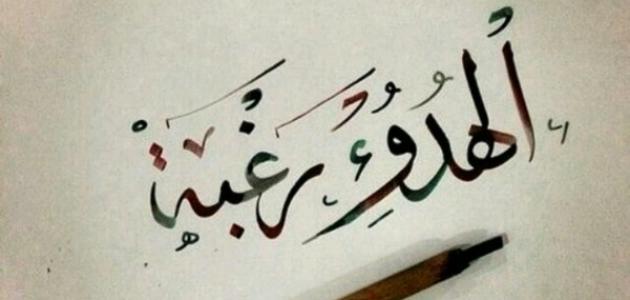 الهُدُوءِ رَغْبَةْ